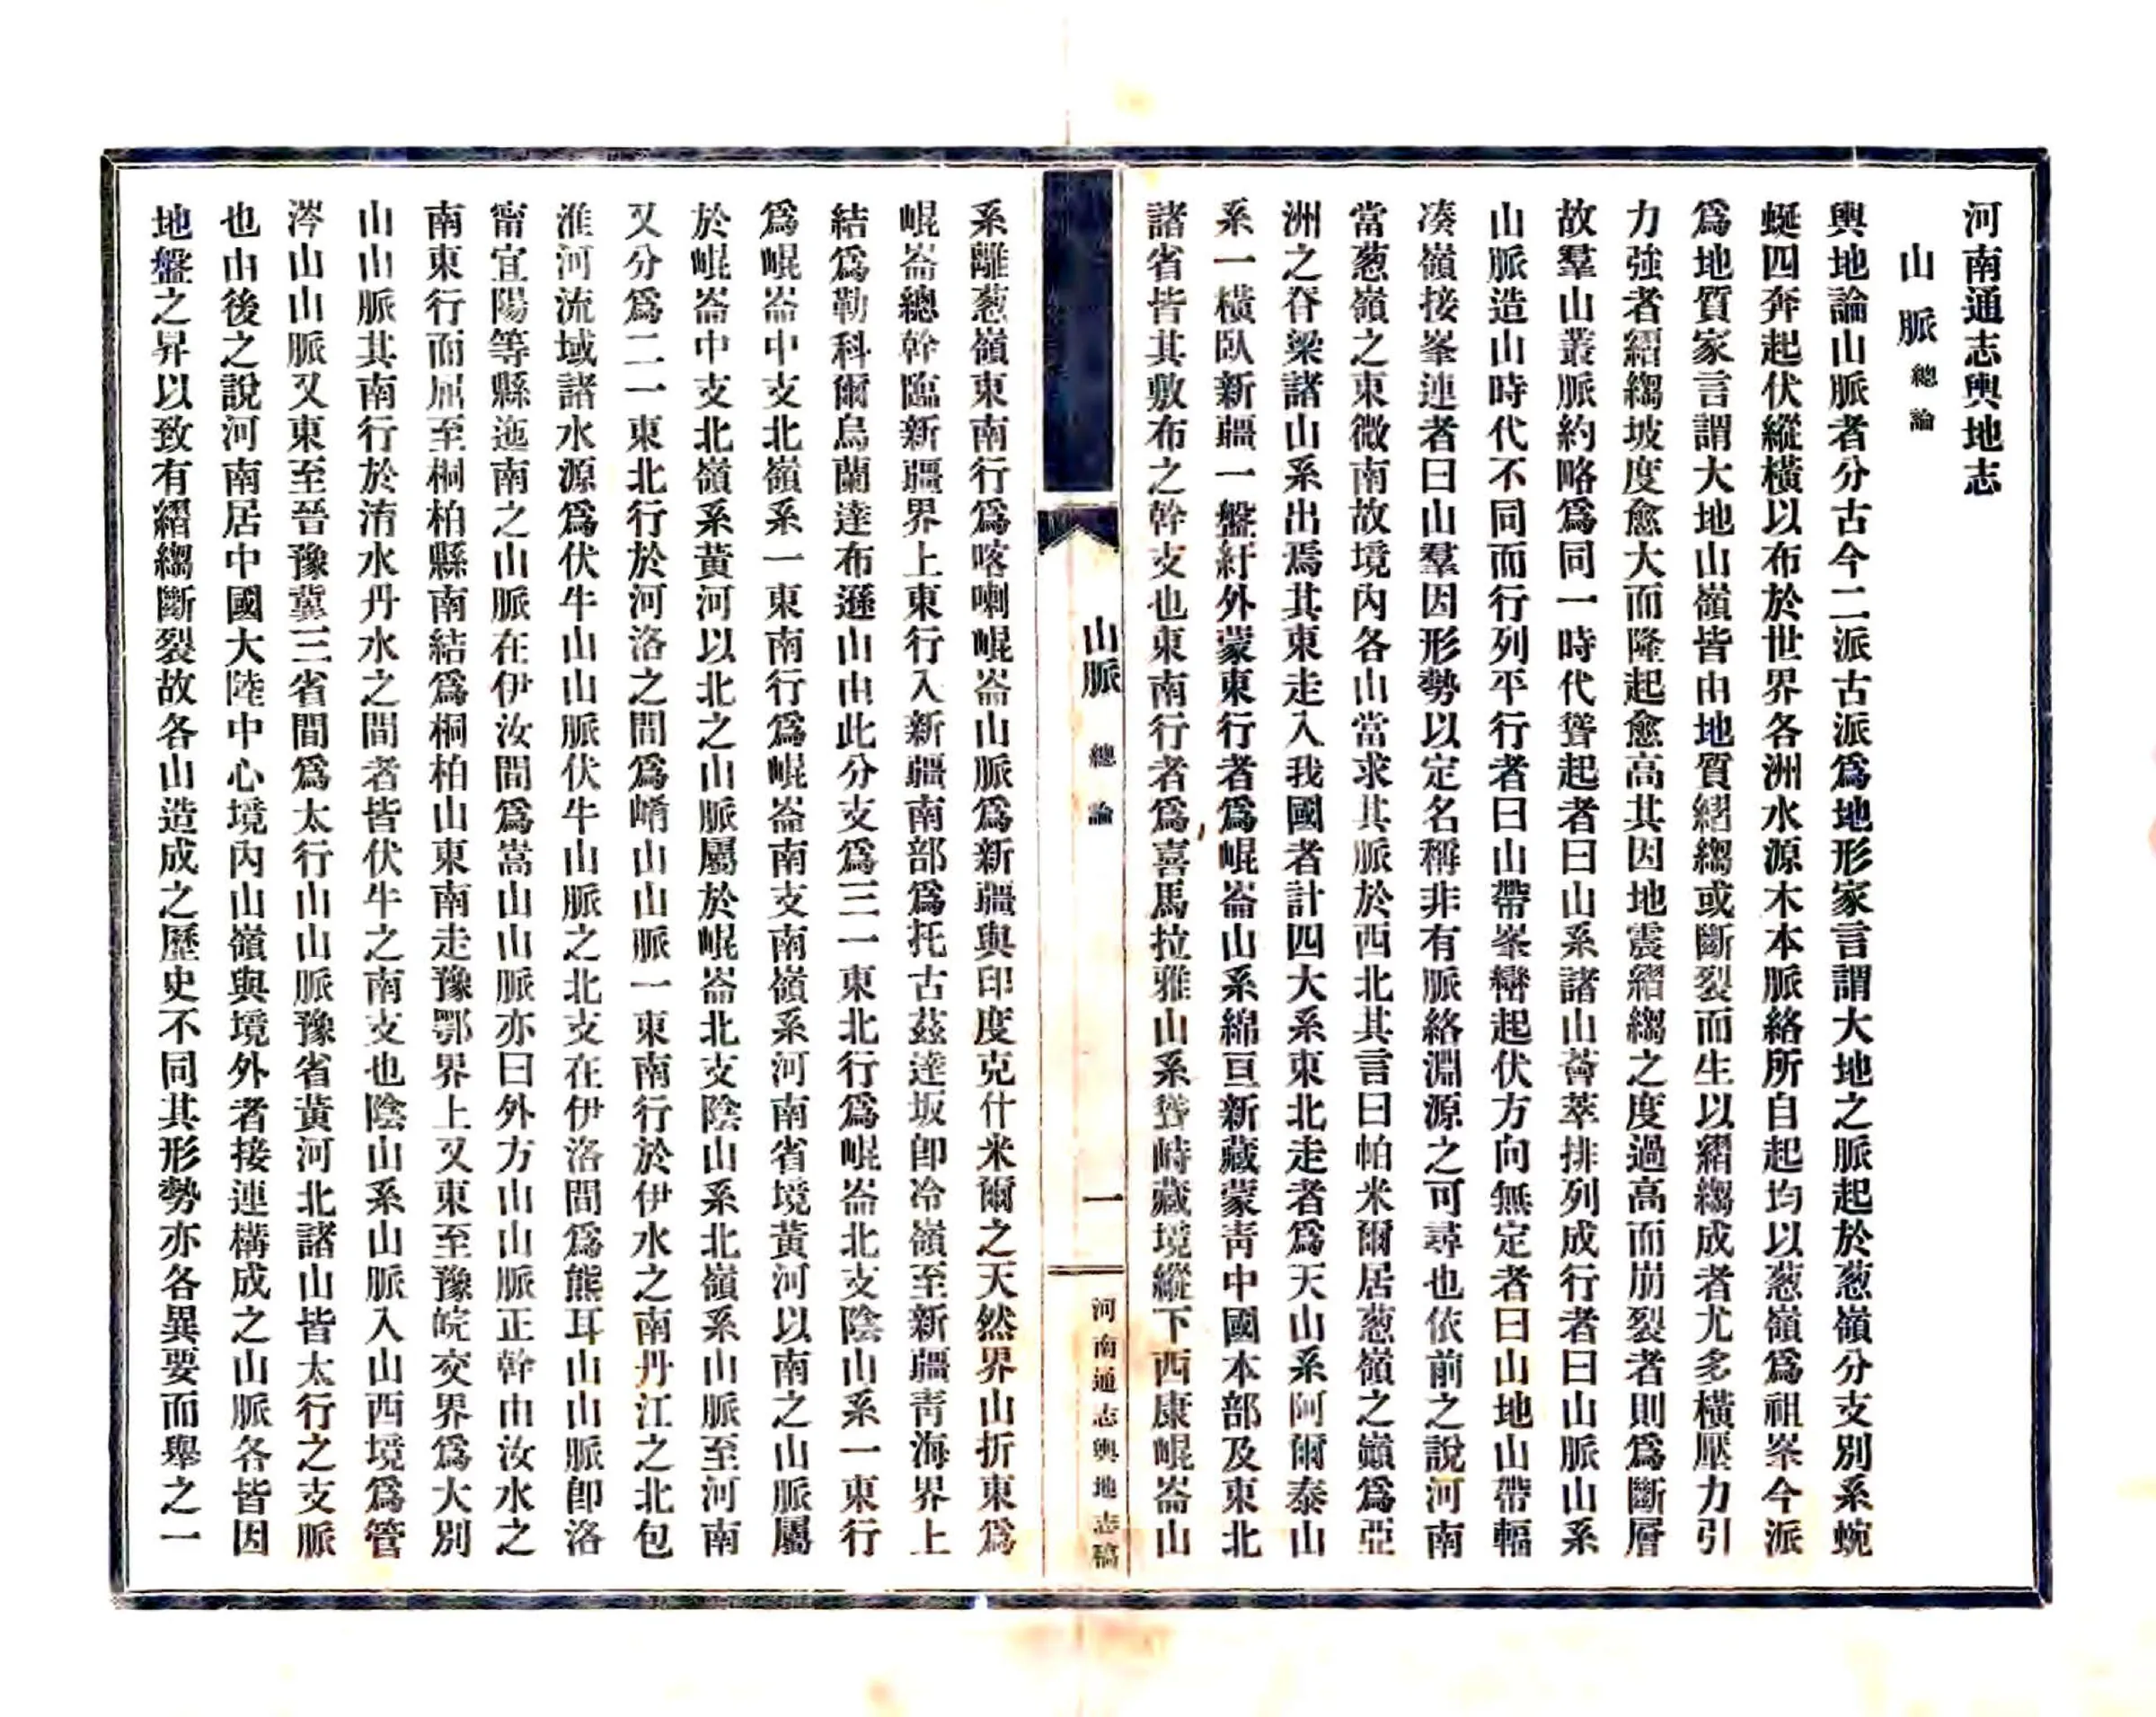 河南通志輿地志
山脈總論
輿地論山脈者分古今二派古派爲地形家言謂大地之脈起於葱嶺分支別系蜿
蜒四奔起伏縱橫以布於世界各洲水源木本脈絡所自起均以葱嶺爲祖峯今派
爲地質家言謂大地山嶺皆由地質縐縐或斷裂而生以縐縐成者尤多橫壓力引
力強者縐縐坡度愈大而隆起愈高其因地震縐縐之度過高而崩裂者則爲斷層
故羣山叢脈約略爲同一時代聳起者曰山系諸山薈萃排列成行者曰山脈山系
山脈造山時代不同而行列平行者曰山帶峯巒起伏方向無定者曰山地山帶輻
凑嶺接峯連者曰山羣因形勢以定名稱非有脈絡淵源之可尋也依前之說河南
當葱嶺之東微南故境內各山當求其脈於西北其言曰帕米爾居葱嶺之巓爲亞
洲之脊梁諸山系出焉其東走入我國者計四大系東北走者爲天山系阿爾泰山
系一橫臥新疆一盤紆外蒙東行者爲崐崙山系綿亘新藏蒙靑中國本部及東北
諸省皆其敷布之幹支也東南行者爲喜馬拉雅山系聳峙藏境縱下西康崐崙山
山脈 總論 一 河南通志輿地志稿
系離葱嶺東南行爲喀喇崐崙山脈爲新疆與印度克什米爾之天然界山折東爲
崐崙總幹臨新疆界上東行入新疆南部爲托古茲達坂卽冷嶺至新疆靑海界上
結爲勒科爾烏蘭達布遜山由此分支爲三一東北行爲崐崙北支陰山系一東行
爲崐崙中支北嶺系一東南行爲崐崙南支南嶺系河南省境黃河以南之山脈屬
於崐崙中支北嶺系黃河以北之山脈屬於崐崙北支陰山系北嶺系山脈至河南
又分爲二一東北行於河洛之間爲崤山山脈一東南行於伊水之南丹江之北包
淮河流域諸水源爲伏牛山山脈伏牛山脈之北支在伊洛間爲熊耳山山脈卽洛
甯宜陽等縣迤南之山脈在伊汝間爲嵩山山脈亦曰外方山山脈正幹由汝水之
南東行而屈至桐柏縣南結爲桐柏山東南走豫鄂界上又東至豫皖交界爲大別
山山脈其南行於淯水丹水之間者皆伏牛之南支也陰山系山脈入山西境爲管
涔山山脈又東至晉豫冀三省間爲太行山山脈豫省黃河北諸山皆太行之支脈
也由後之說河南居中國大陸中心境內山嶺與境外者接連構成之山脈各皆因
地盤之昇以致有縐縐斷裂故各山造成之歷史不同其形勢亦各異要而舉之一